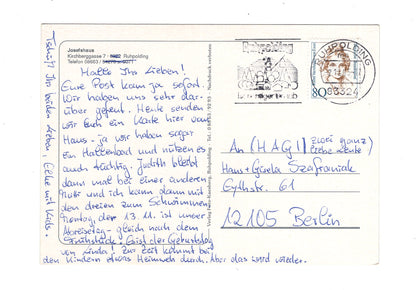 Josefshaus
Kirchberggasse 7 · 8222 Ruhpolding
Telefon 08663/
Tschüß Ihr beiden Lieben, Elke mit Kids.
Hallo Ihr Lieben!
Eure Post kam ja sofort.
Wir haben uns sehr dar-
über gefreut. Heute senden
wir Euch ein Karte hier vom
Haus - ja wir haben sogar
ein Hallenbad und nützen es
auch tüchtig. Judith bleibt
dann mal bei einer anderen
und ich kann dann mit
den dreien zum Schwimmen.
Montag, der 13.11. ist unser
Abreisetag - gleich nach dem
Frühstück. Es ist der Geburtstag
von Linda! Zur Zeit kommt bei
den Kindern etwas Heimweh durch. Aber das wird wieder.
Ruhpolding
RUHPOLDING
83324
80
An (HAGI) zwei ganz
liebe Leute
Hans + Gisela Szafraniak
Eythstr. 61
12105 Berlin